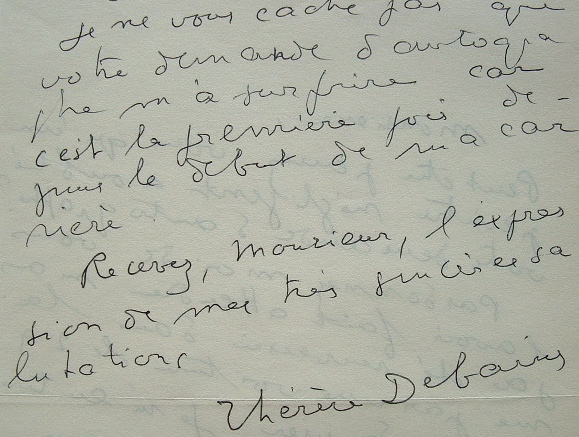 Je ne vous cache pas que
votre demande d'autogra
phe m'a surprise car
c'est la première fois de-
puis le début de ma car
rière
Recevez, Monsieur, l'expres
sion de mes très sincères sa
lutations
Thérèse Debains